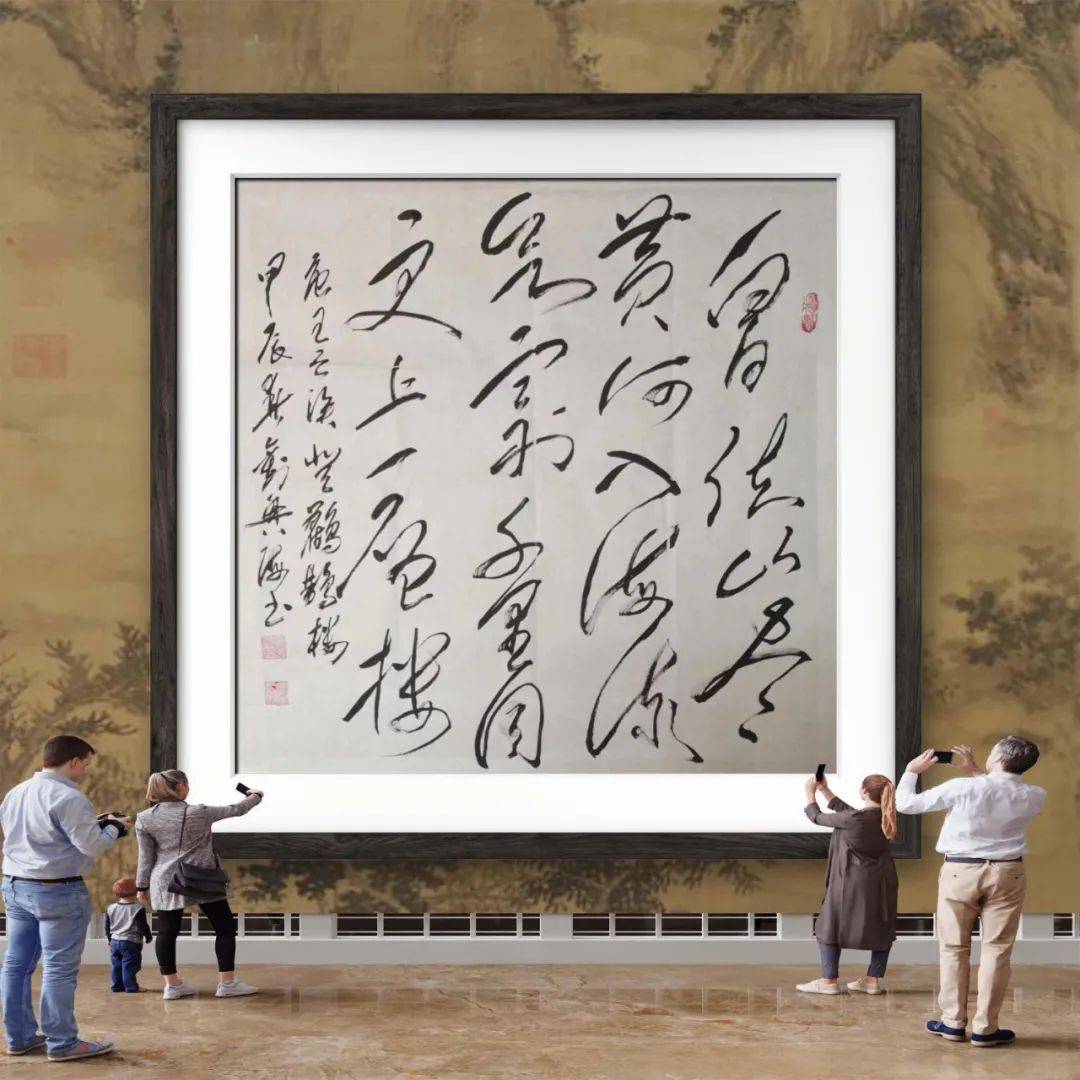 白日依山尽
黄河入海流
欲窮千里目
更上一層楼
唐王之涣登鸛鵲楼
甲辰春劉興海书